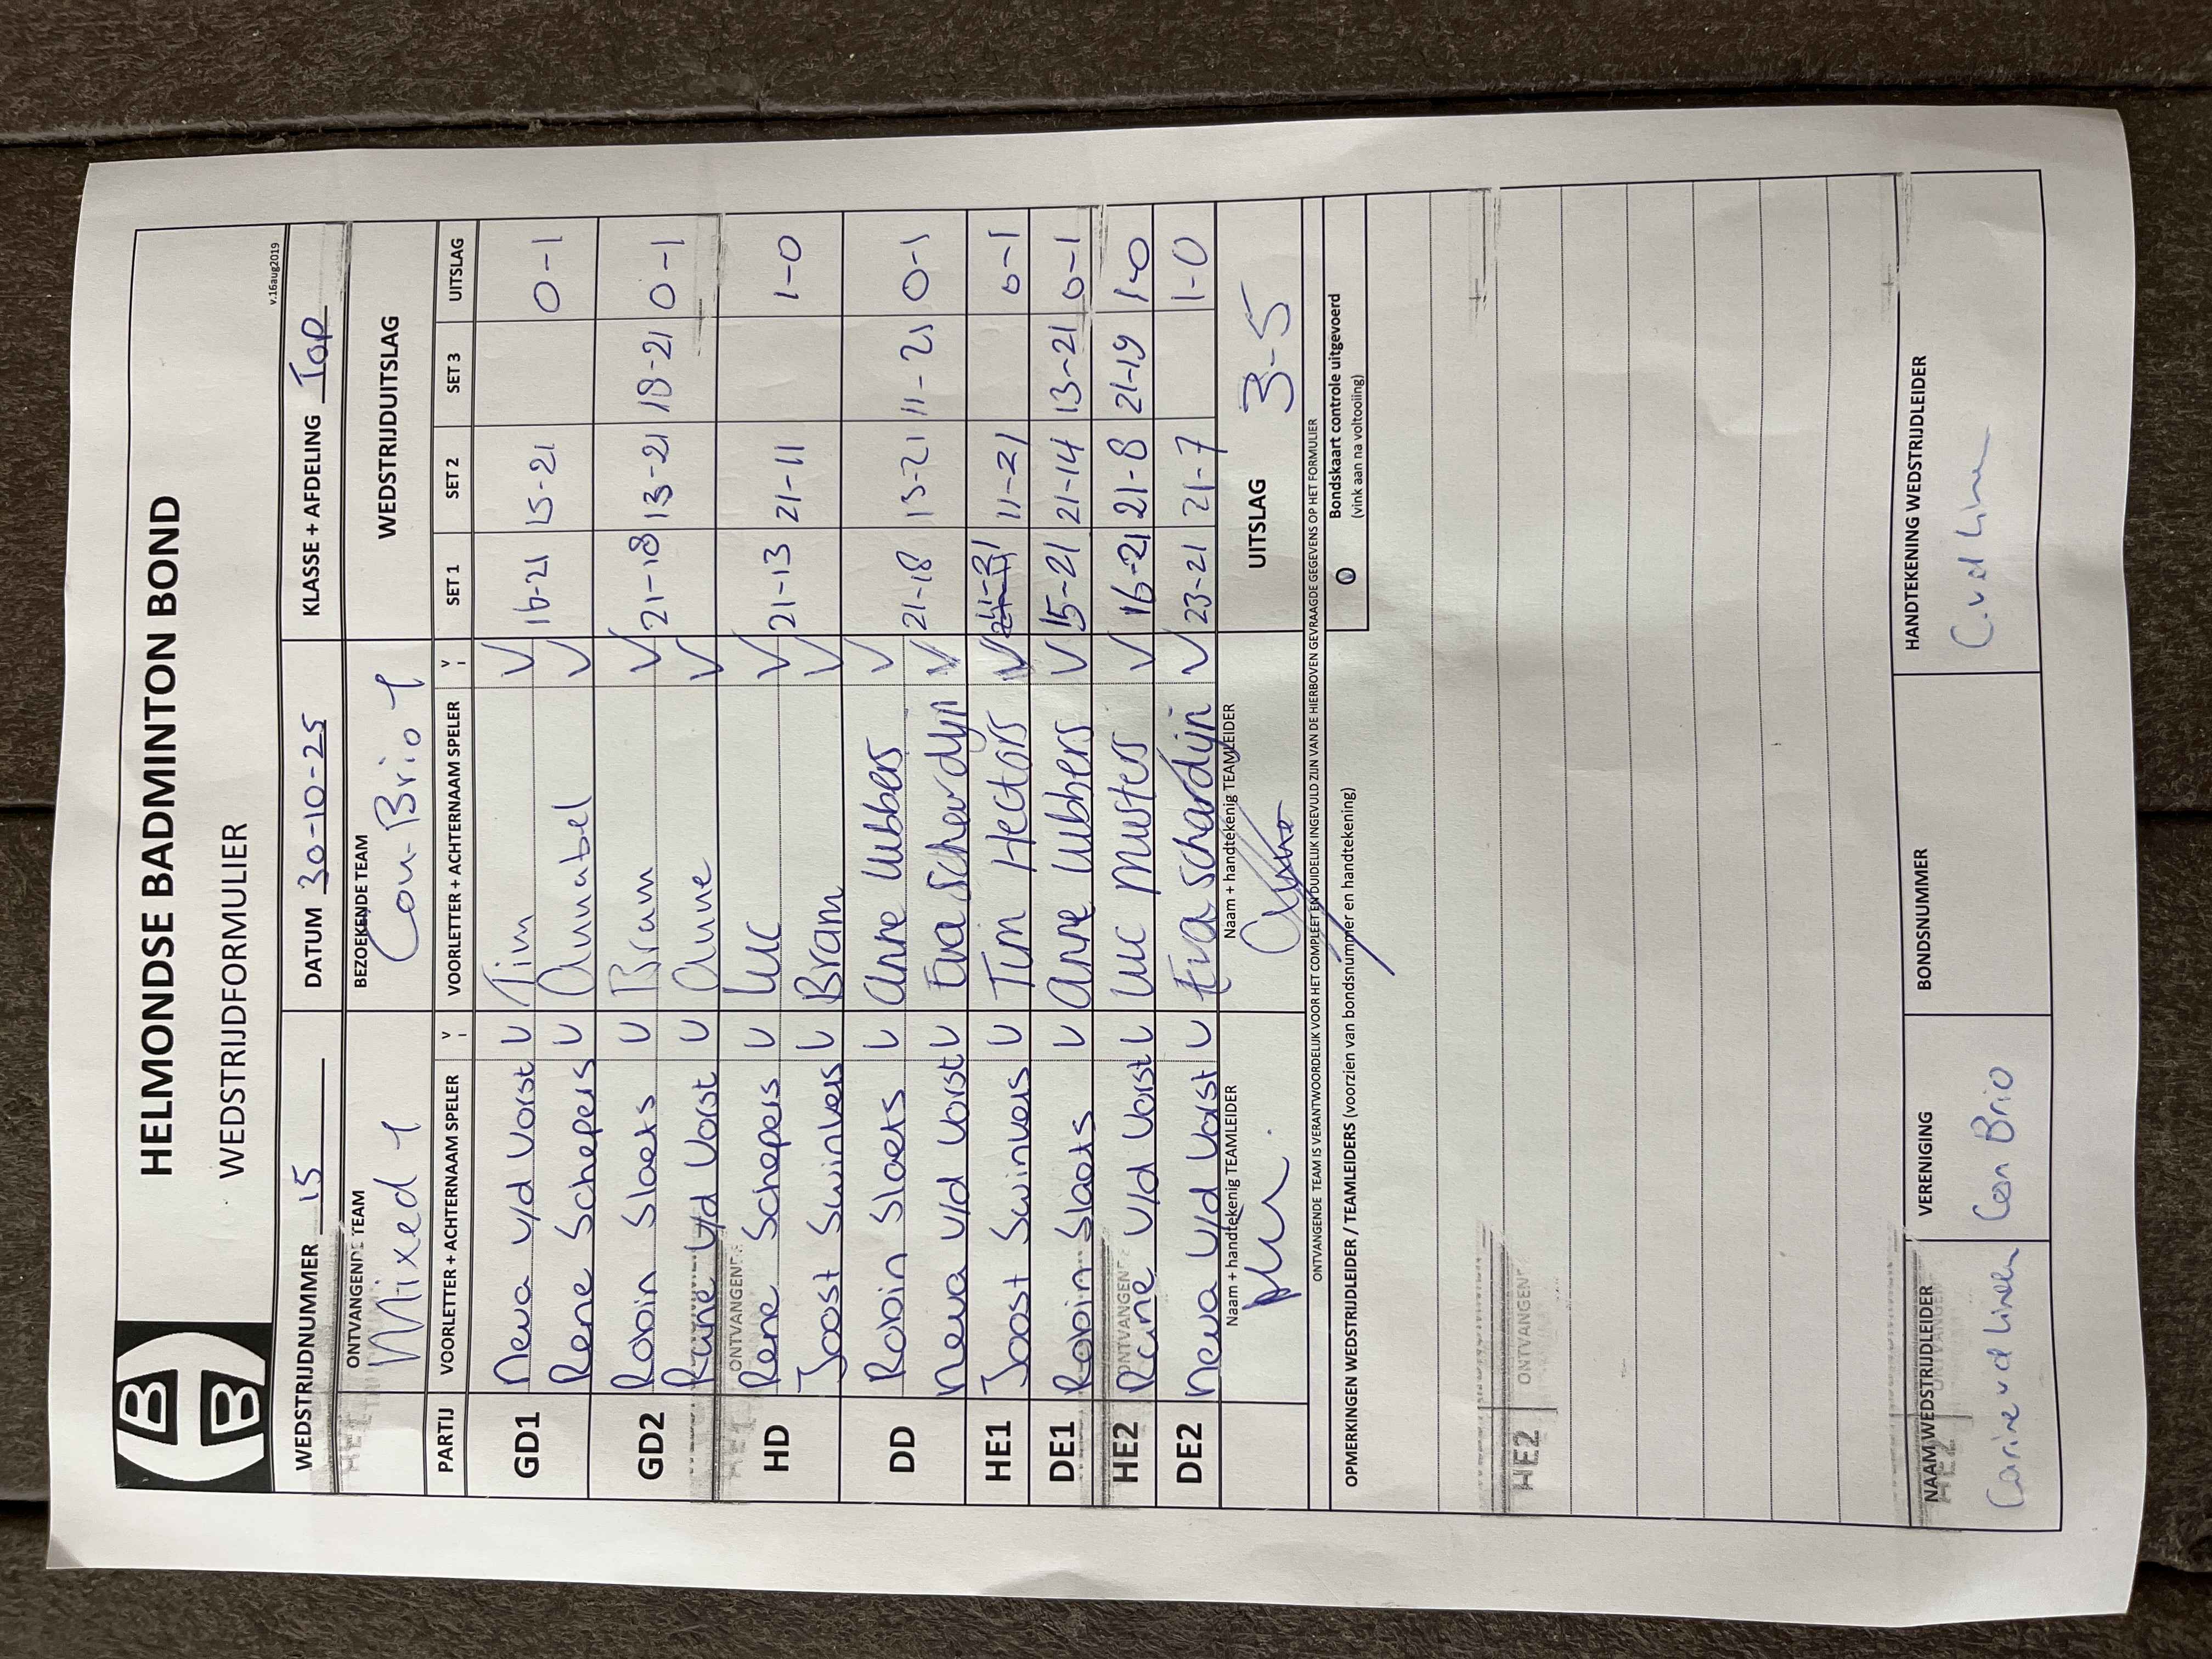 HELMONDSE BADMINTON BOND
WEDSTRIJDFORMULIER
v.16aug2019
WEDSTRIJDNUMMER 15 DATUM 30-10-25 KLASSE + AFDELING Top
ONTVANGENDE TEAM BEZOEKENDE TEAM WEDSTRIJDUITSLAG
Mixed 1 Con Brio 1
PARTIJ VOORLETTER + ACHTERNAAM SPELER V VOORLETTER + ACHTERNAAM SPELER V SET 1 SET 2 SET 3 UITSLAG
GD1 Newa v/d Vorst V Tim V 16-21 15-21 0-1
Rene Schepers V Annabel V
GD2 Robin Slaets V Bram V 21-18 13-21 18-21 0-1
Rune v/d Vorst V Anne V
HD Rene Schepers V Luc V 21-13 21-11 1-0
Joost Swinkels V Bram V
DD Robin Slaets V Anne Lubbers V 21-18 15-21 11-21 0-1
Newa v/d Vorst V Eva Scherdijn V
HE1 Joost Swinkels V Tim Hectors V 11-21 0-1
DE1 Robin Slaets V Anne Lubbers V 15-21 21-14 13-21 0-1
HE2 Rune v/d Vorst V Luc Musters V 16-21 21-8 21-19 1-0
DE2 Newa v/d Vorst V Eva Schardijn V 23-21 21-7 1-0
Naam + handtekenig TEAMLEIDER Naam + handtekenig TEAMLEIDER UITSLAG 3-5
Anne
ONTVANGENDE TEAM IS VERANTWOORDELIJK VOOR HET COMPLEET EN DUIDELIJK INGEVULD ZIJN VAN DE HIERBOVEN GEVRAAGDE GEGEVENS OP HET FORMULIER
OPMERKINGEN WEDSTRIJDLEIDER / TEAMLEIDERS (voorzien van bondsnummer en handtekening)
O Bondskaart controle uitgevoerd
(vink aan na voltooiing)
HE2 ONTVANGEN
NAAM WEDSTRIJDLEIDER VERENIGING BONDSNUMMER HANDTEKENING WEDSTRIJDLEIDER
vd Linden Con Brio C. vd Linden